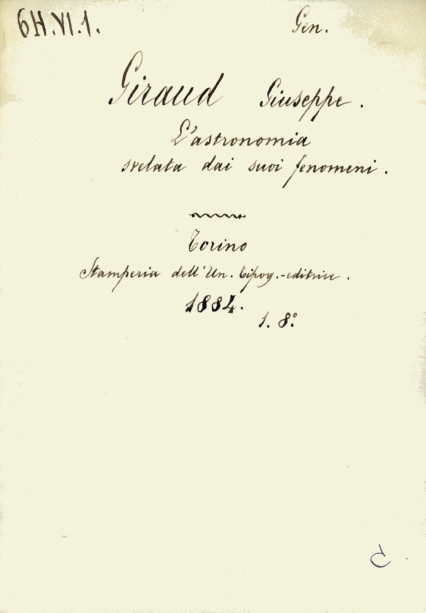 6H.VI.1.
Gen.
Giraud Giuseppe.
L'astronomia
svelata dai suoi fenomeni.
Torino
Stamperia dell'Un. tipog.-editrice.
1884.
1. 8°
C